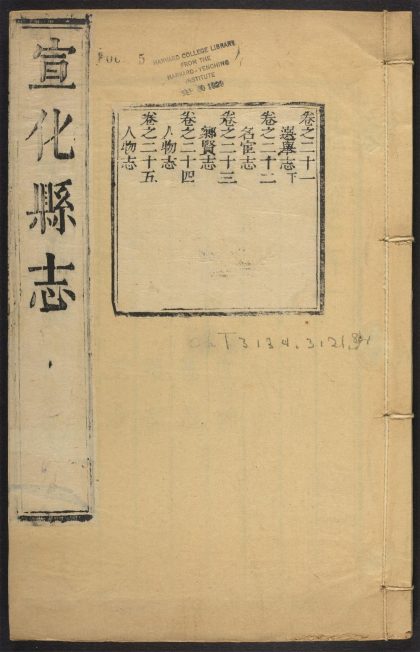 宣化縣志
HARVARD COLLEGE LIBRARY
FROM THE
HARVARD-YENCHING
INSTITUTE
卷之二十一
選舉志下
卷之二十二
名宦志
卷之二十三
鄉賢志
卷之二十四
人物志
卷之二十五
人物志